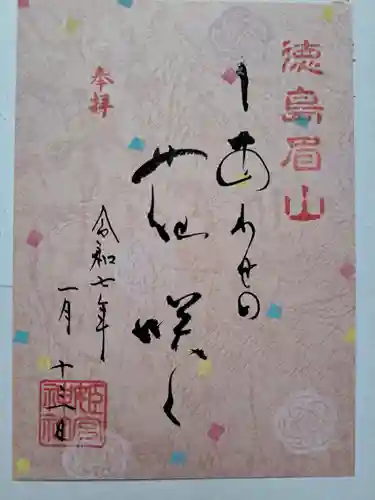 徳島眉山
しあわせの
花咲く
奉拝
令和七年
一月十三日
姫宮
祖神